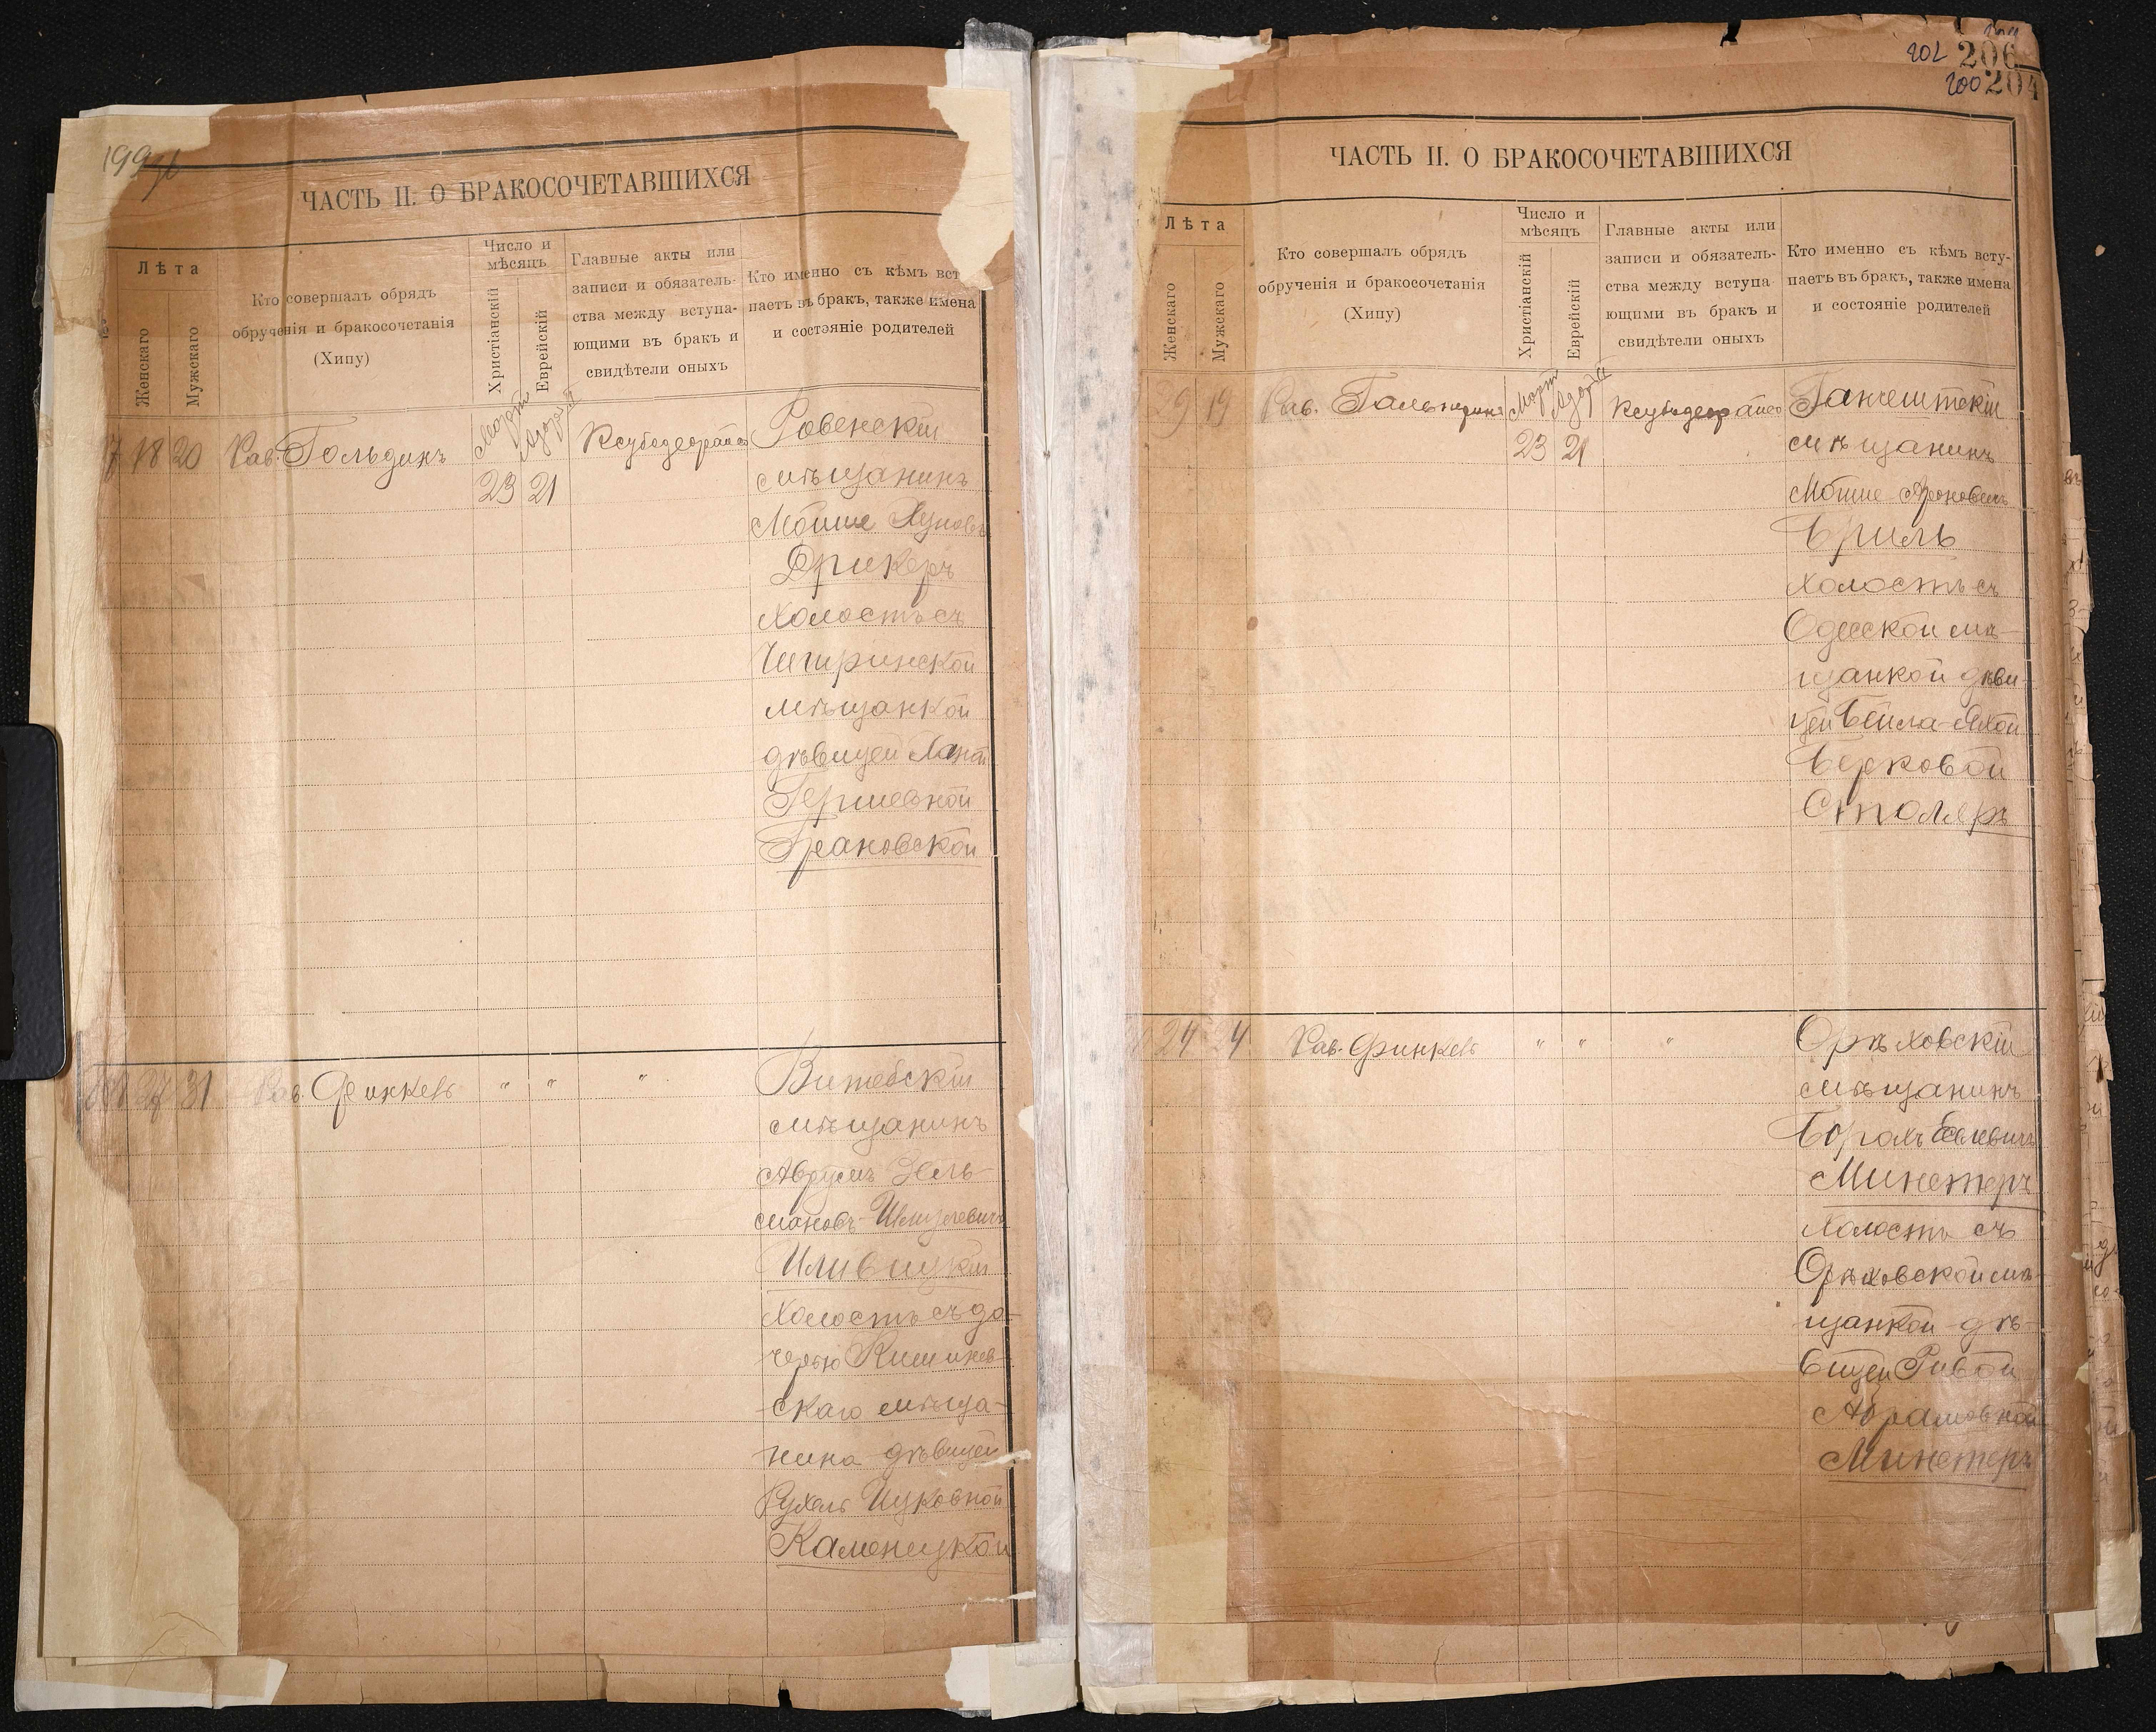 199
ЧАСТЬ II. О БРАКОСОЧЕТАВШИХСЯ
Лѣта
Женскаго
Мужскаго
Кто совершалъ обрядъ
обрученія и бракосочетанія
(Хипу)
Число и
мѣсяцъ
Христіанскій
Еврейскій
Главные акты или
записи и обязатель-
ства между вступа-
ющими въ бракъ и
свидѣтели оныхъ
Кто именно съ кѣмъ вст
паетъ въ бракъ, также имена
и состояніе родителей
18 20 Рав. Гольдинъ
Мартъ
23 21
Ровенскій
мѣщанинъ
Мойше
Дрикеръ
холостъ съ
Чигринской
мѣщанкой
дѣвицей
Гершевной
Грановской
27 31 Рав. Финкель " " "
Витебскій
мѣщанинъ
Аврумъ Зель
мановъ-Шмулевичъ
холостъ съ до-
черью Кишинев-
скаго мѣща-
нина дѣвицей
Рухель Ицковной
Каменецкой
202 206
200 204
ЧАСТЬ II. О БРАКОСОЧЕТАВШИХСЯ
Лѣта
Женскаго
Мужскаго
Кто совершалъ обрядъ
обрученія и бракосочетанія
(Хипу)
Число и
мѣсяцъ
Христіанскій
Еврейскій
Главные акты или
записи и обязатель-
ства между вступа-
ющими въ бракъ и
свидѣтели оныхъ
Кто именно съ кѣмъ всту-
паетъ въ бракъ, также имена
и состояніе родителей
29 19 Рав. Гальперинъ
Мартъ
23 21
Ганчештскій
мѣщанинъ
Мойше Ароновичъ
Бриль
холостъ съ
Одесской мѣ-
щанкой дѣви-
цей Бейла-
Берковой
Столяръ
24 24 Рав. Финкель " " "
Орѣховскій
мѣщанинъ
Борохъ
Минстеръ
холостъ съ
Орѣховской мѣ-
щанкой дѣ-
вицей Ривой
Абрамовной
Минстеръ